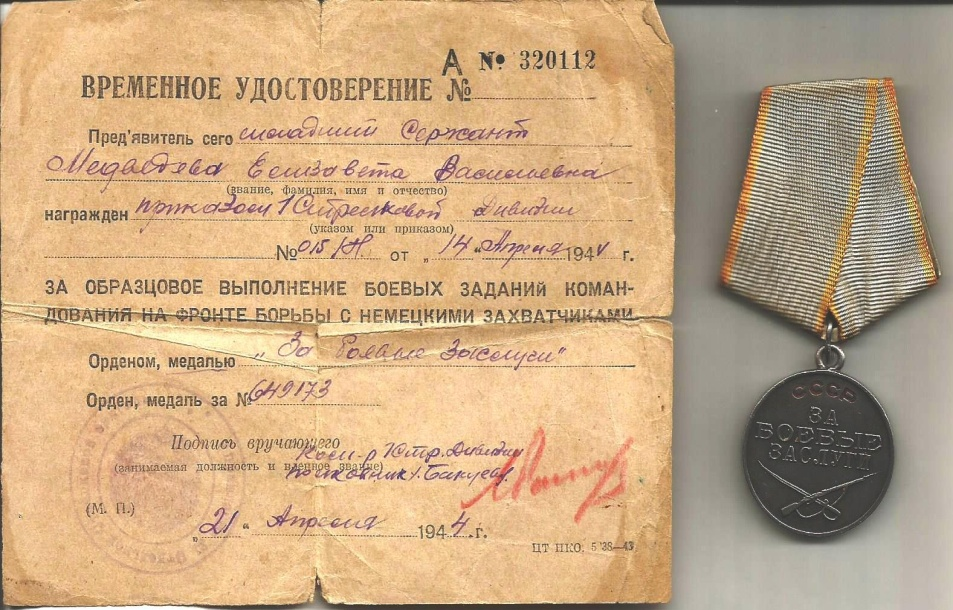 А № 320112
ВРЕМЕННОЕ УДОСТОВЕРЕНИЕ №
Пред'явитель сего младший Сержант
Медведева Елизавета Васильевна
(звание, фамилия, имя и отчество)
награжден приказом 1 Стрелковой Дивизии
(указом или приказом)
№ 015/Н от „14" Апреля 1944 г.
ЗА ОБРАЗЦОВОЕ ВЫПОЛНЕНИЕ БОЕВЫХ ЗАДАНИЙ КОМАН-
ДОВАНИЯ НА ФРОНТЕ БОРЬБЫ С НЕМЕЦКИМИ ЗАХВАТЧИКАМИ
Орденом, медалью „За Боевые Заслуги"
Орден, медаль за № 649173
Подпись вручающего
Ком-р 1 Стр. Дивизии
(занимаемая должность и военное звание)
полковник
(М. П.)
„21" Апреля 1944 г.
ЦТ НКО. 5'38—43
СССР
ЗА
БОЕВЫЕ
ЗАСЛУГИ